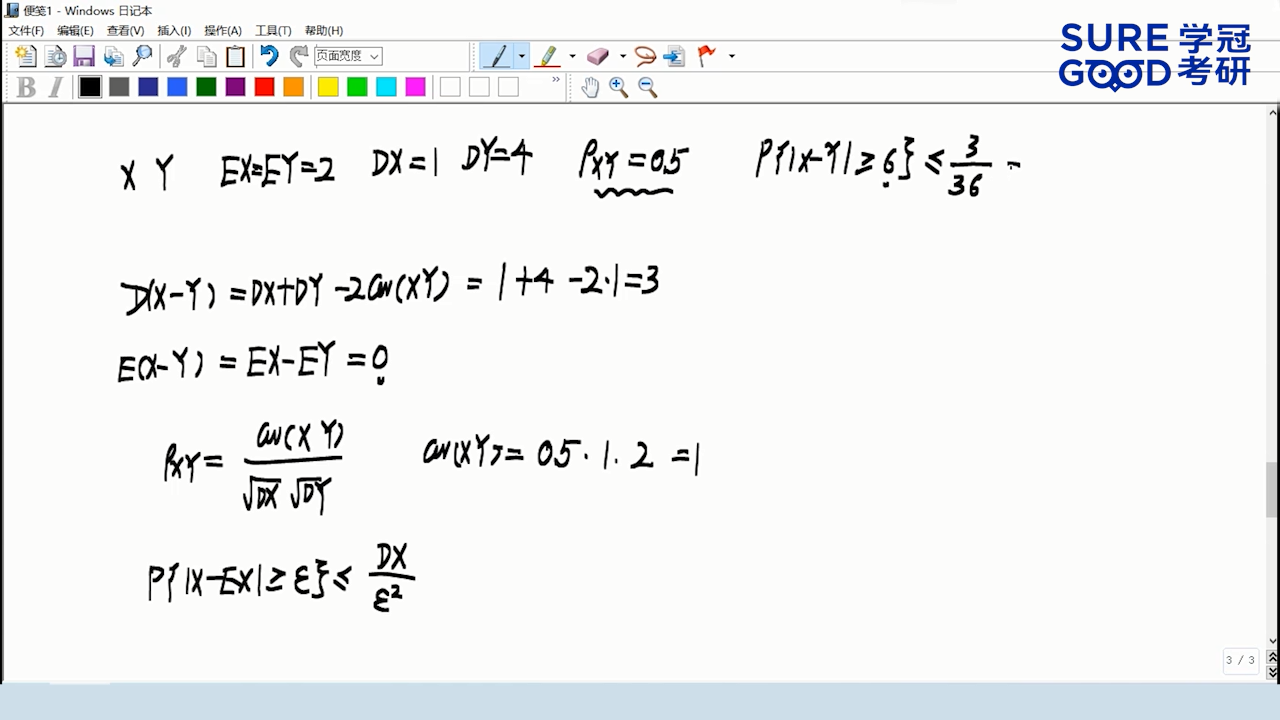 便笺1 - Windows 日记本
文件(F) 编辑(E) 查看(V) 插入(I) 操作(A) 工具(T) 帮助(H)
页面宽度
B I
SURE 学冠
GOOD 考研
X Y EX=EY=2 DX=1 DY=4 ρXY=0.5 P{|X-Y|≥6}≤3/36 =
D(X-Y)=DX+DY-2Cov(XY)=1+4-2·1=3
E(X-Y)=EX-EY=0
ρXY=Cov(XY)/√DX √DY Cov(XY)=0.5·1·2=1
P{|X-EX|≥ε}≤DX/ε²
3 / 3